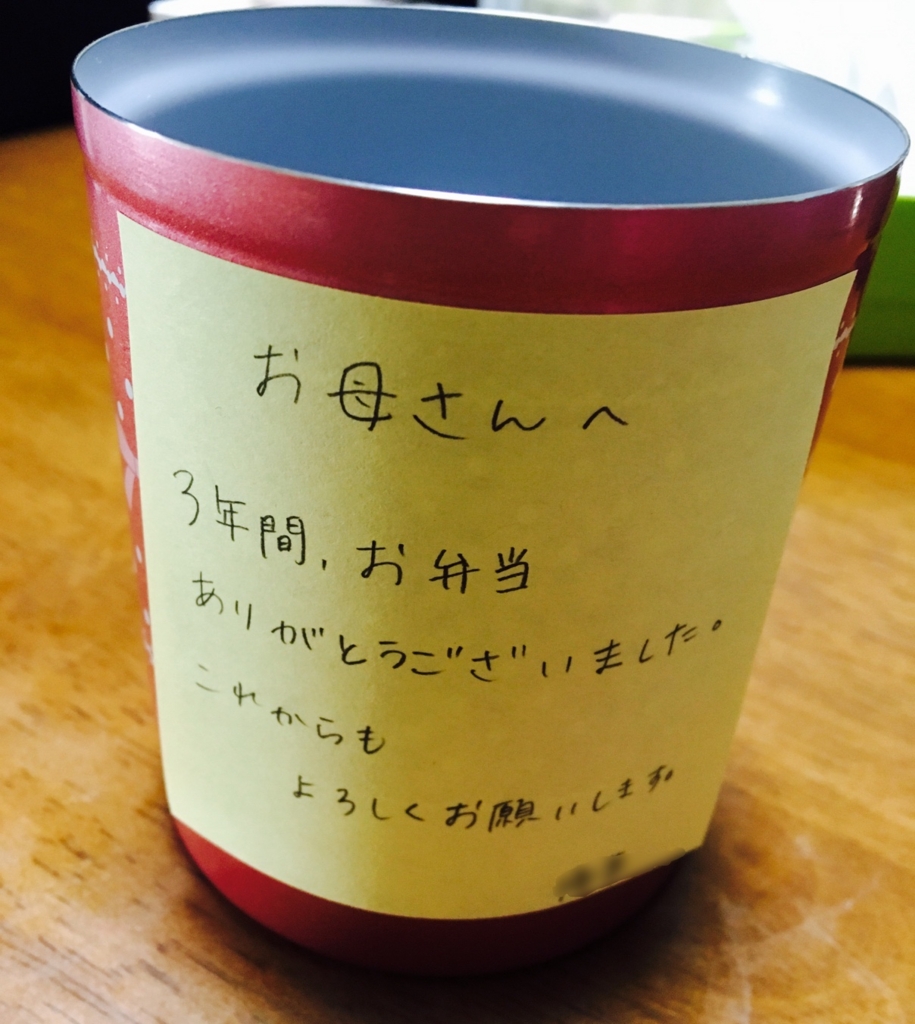 お母さんへ
3年間、お弁当
ありがとうございました。
これからも
よろしくお願いします。